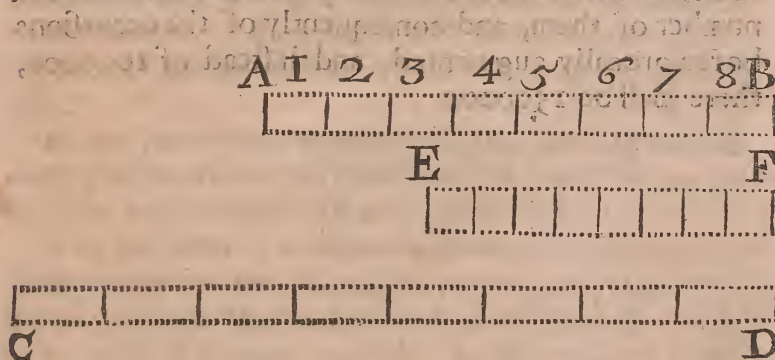 A 1 2 3 4 5 6 7 8 B
E F
C D